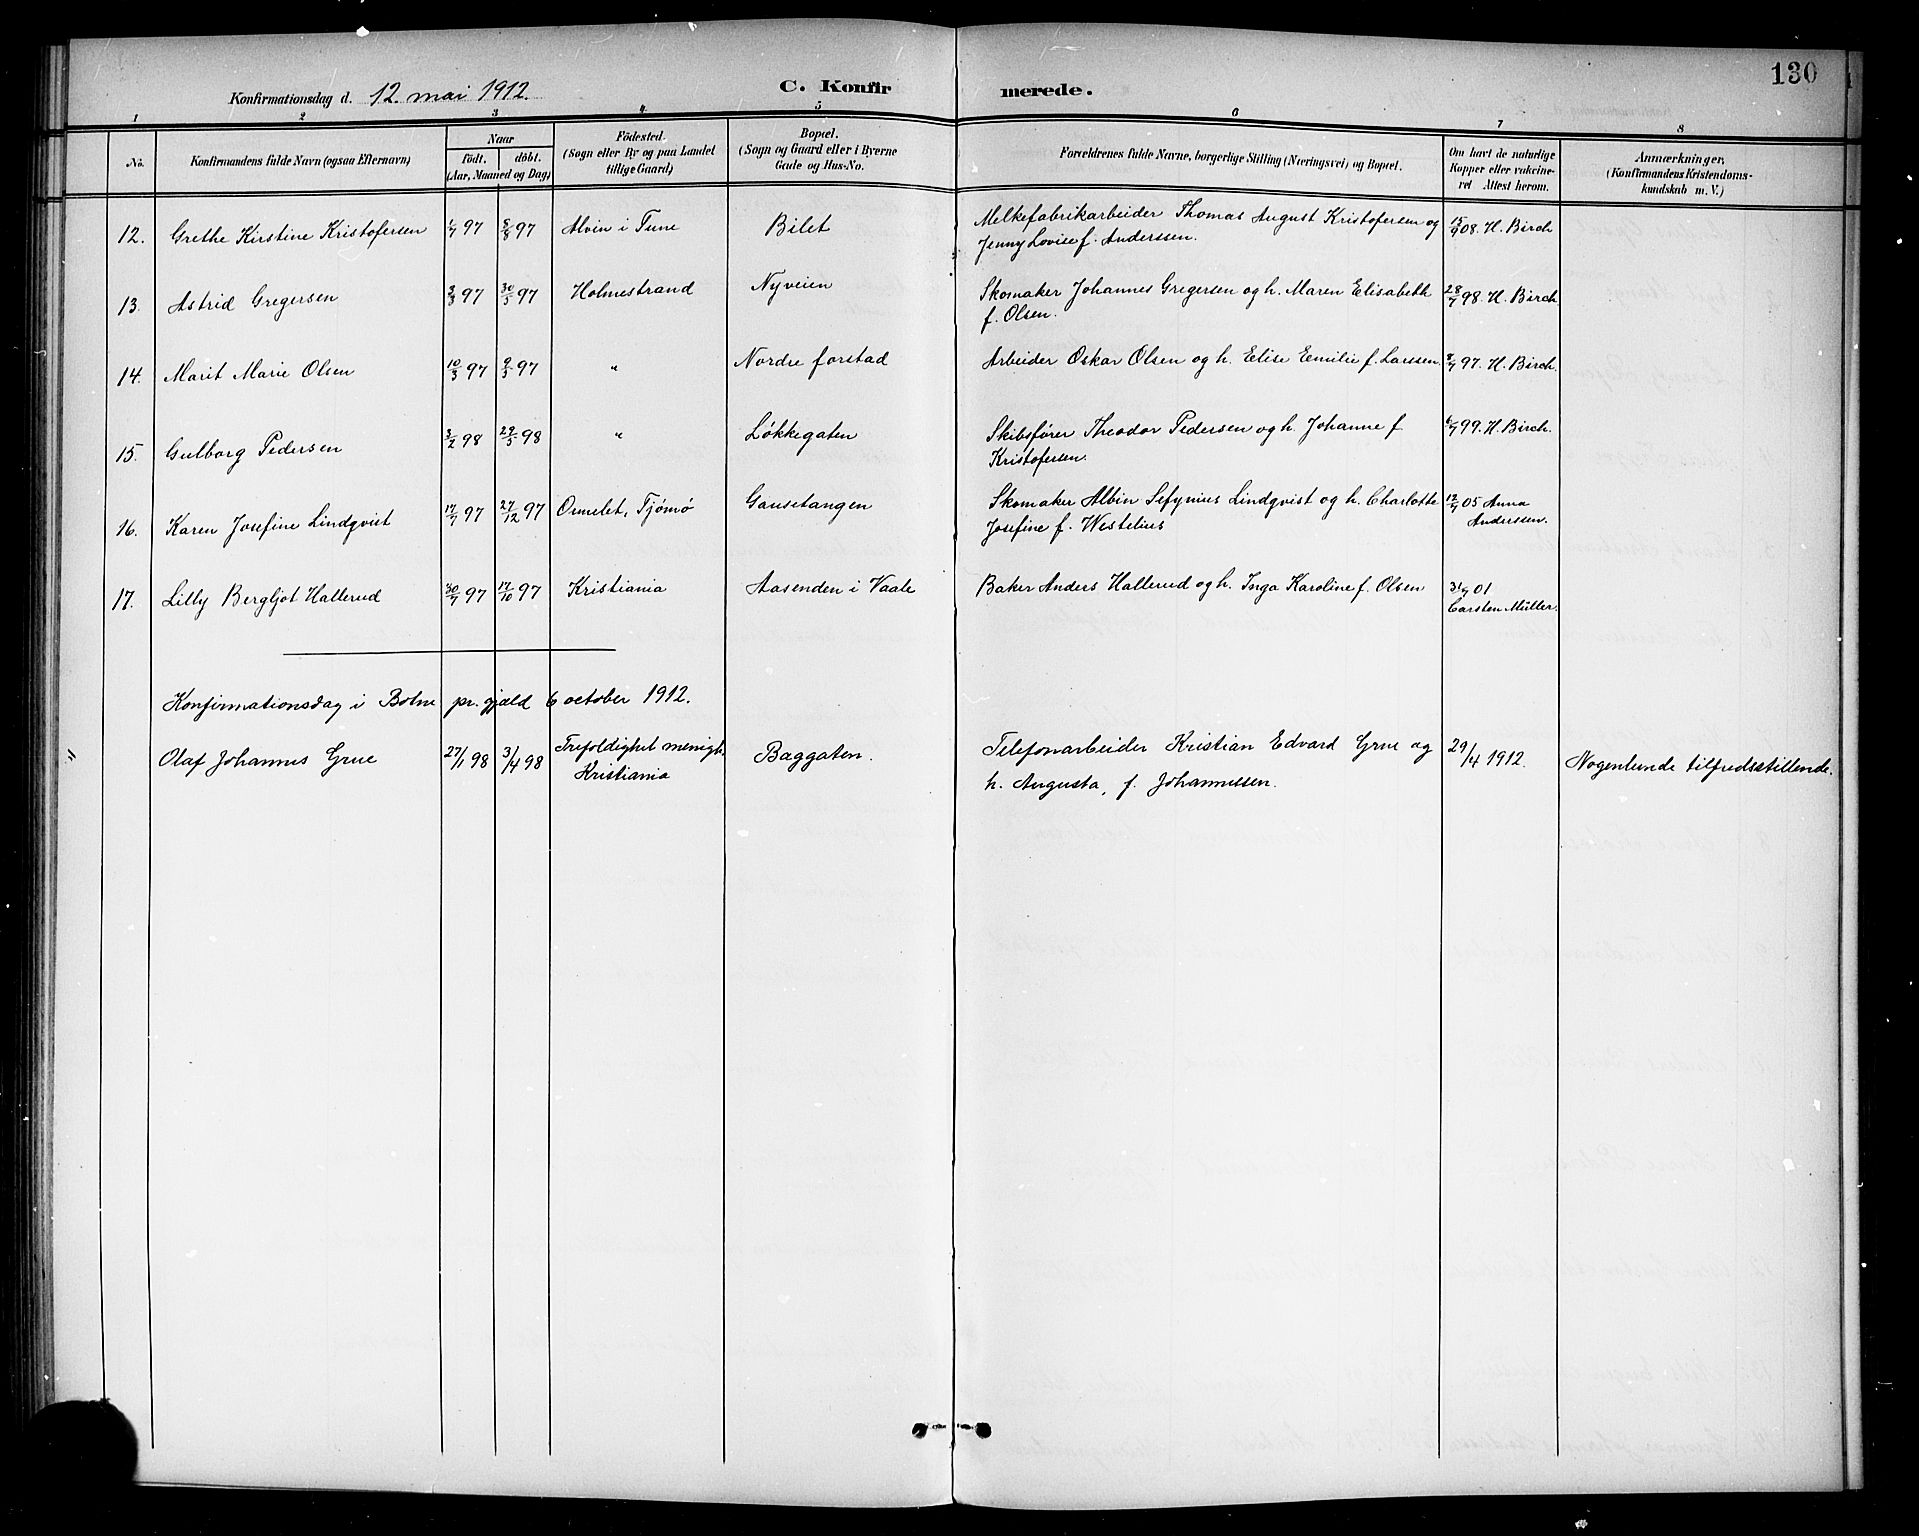 130
Konfirmationsdag d. 12. mai 1912. C. Konfir merede.
1 2 3 4 5 6 7 8
No.
Konfirmandens fulde Navn (ogsaa Efternavn)
Naar
födt. döbt.
(Aar, Maaned og Dag)
Födested.
(Sogn eller By og paa Landet
tillige Gaard)
Bopæl.
(Sogn og Gaard eller i Byerne
Gade og Hus-No.
Forældrenes fulde Navne, borgerlige Stilling (Næringsvei) og Bopæl.
Om havt de naturlige
Kopper eller vakcine-
ret Attest herom.
Anmærkninger.
(Konfirmandens Kristendoms-
kundskab m. V.)
12. Grethe Kirstine Kristofersen 1/7 97 8/8 97 Alvin i Tune Bilet Melkefabrikarbeider Thomas August Kristofersen og 15/9 08. H. Birch
Jenny Lovise f. Anderssen.
13. Astrid Gregersen 3/3 97 30/5 97 Holmestrand Nyveien Skomaker Johannes Gregersen og h. Maren Elisabeth 28/7 98. H. Birch
f. Olsen.
14. Marit Marie Olsen 10/3 97 9/5 97 " Nordre forstad Arbeider Oskar Olsen og h. Elise Emilie f. Larssen. 8/7 97. H. Birch.
15. Gulborg Pedersen 3/2 98 29/5 98 " Løkkegaten Skibsfører Theodor Pedersen og h. Johanne f. 6/7 99. H. Birch.
Kristofersen.
16. Karen Josefine Lindqvist 17/7 97 27/12 97 Ormelet, Tjømø Gausetangen Skomaker Albin Sefynius Lindqvist og h. Charlotte 12/7 05 Anna
Josefine f. Westelius Anderssen.
17. Lilly Bergljot Hallerud 30/7 97 17/10 97 Kristiania Aasenden i Vaale Baker Anders Hallerud og h. Inga Karoline f. Olsen 3/7 01
Carsten Müller.
Konfirmationsdag i Botne pr. gjæld 6 october 1912.
" Olaf Johannes Grue 27/1 98 3/4 98 Trefoldighet menigh. Baggaten. Telefonarbeider Kristian Edvard Grue og 29/4 1912. Nogenlunde tilfredsstillende.
Kristiania h. Augusta, f. Johannessen.